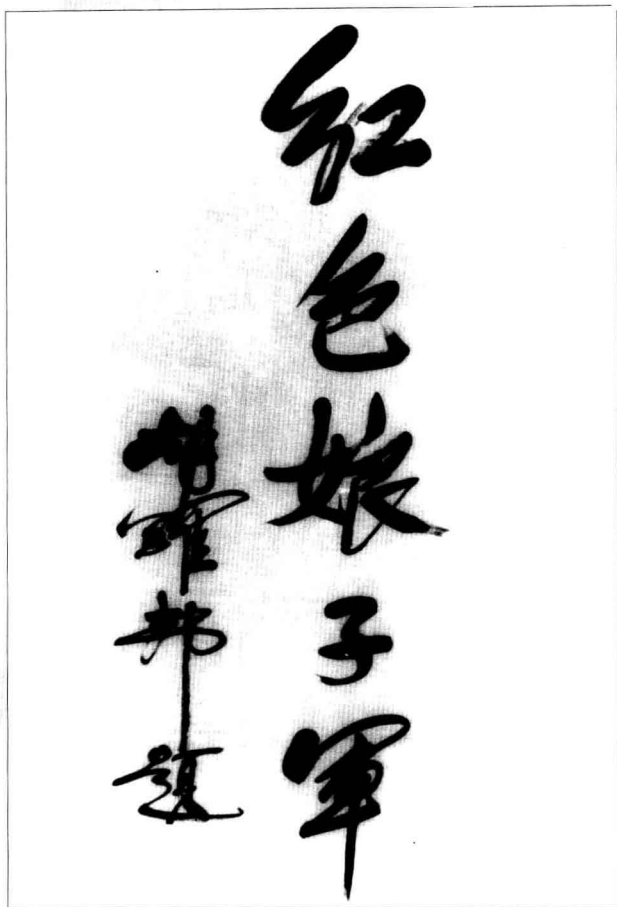 红色娘子軍
胡耀邦题